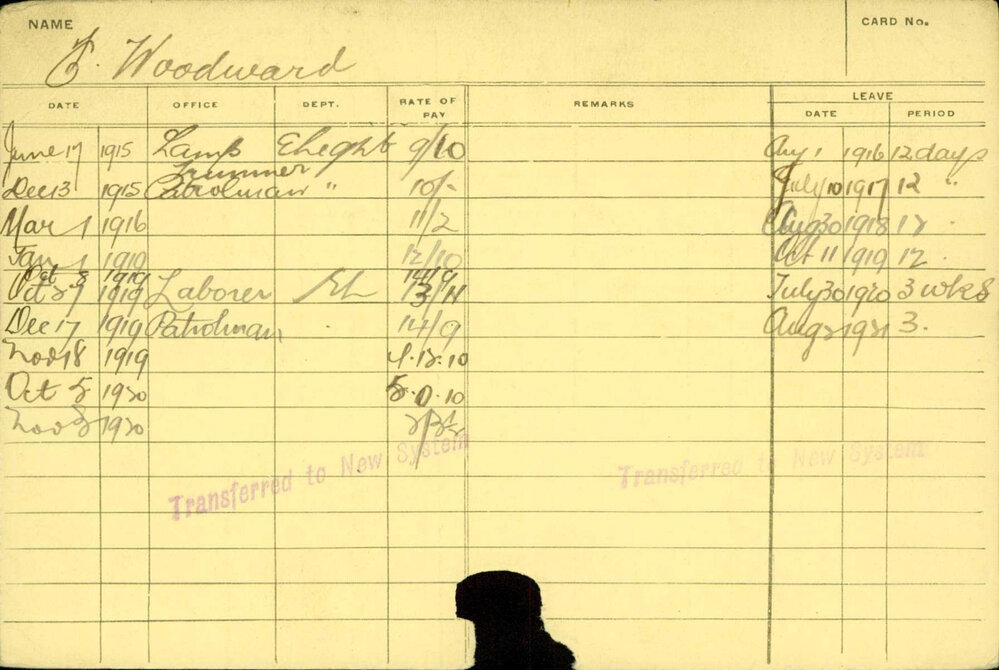 NAME
CARD No.
Woodward
DATE OFFICE DEPT. RATE OF PAY REMARKS LEAVE
DATE PERIOD
June 17 1915 Lamp Elleght 9/10 Aug 1 1916 12 days
Trimmer
Dec 13 1915 Patrolman " 10/- July 10 1917 12 "
Mar 1 1916 11/2 Aug 30 1918 12
Jan 1 1919 12/10 Oct 11 1919 12.
Oct 8 1919 14/9
Oct 27 1919 Laborer El 13/11 July 30 1920 3 wks
Dec 17 1919 Patrolman 14/9 Aug 2 1921 3.
Nov 18 1919 4.12.10
Oct 5 1920 5.0.10
Nov 1920
Transferred to New System
Transferred to New System